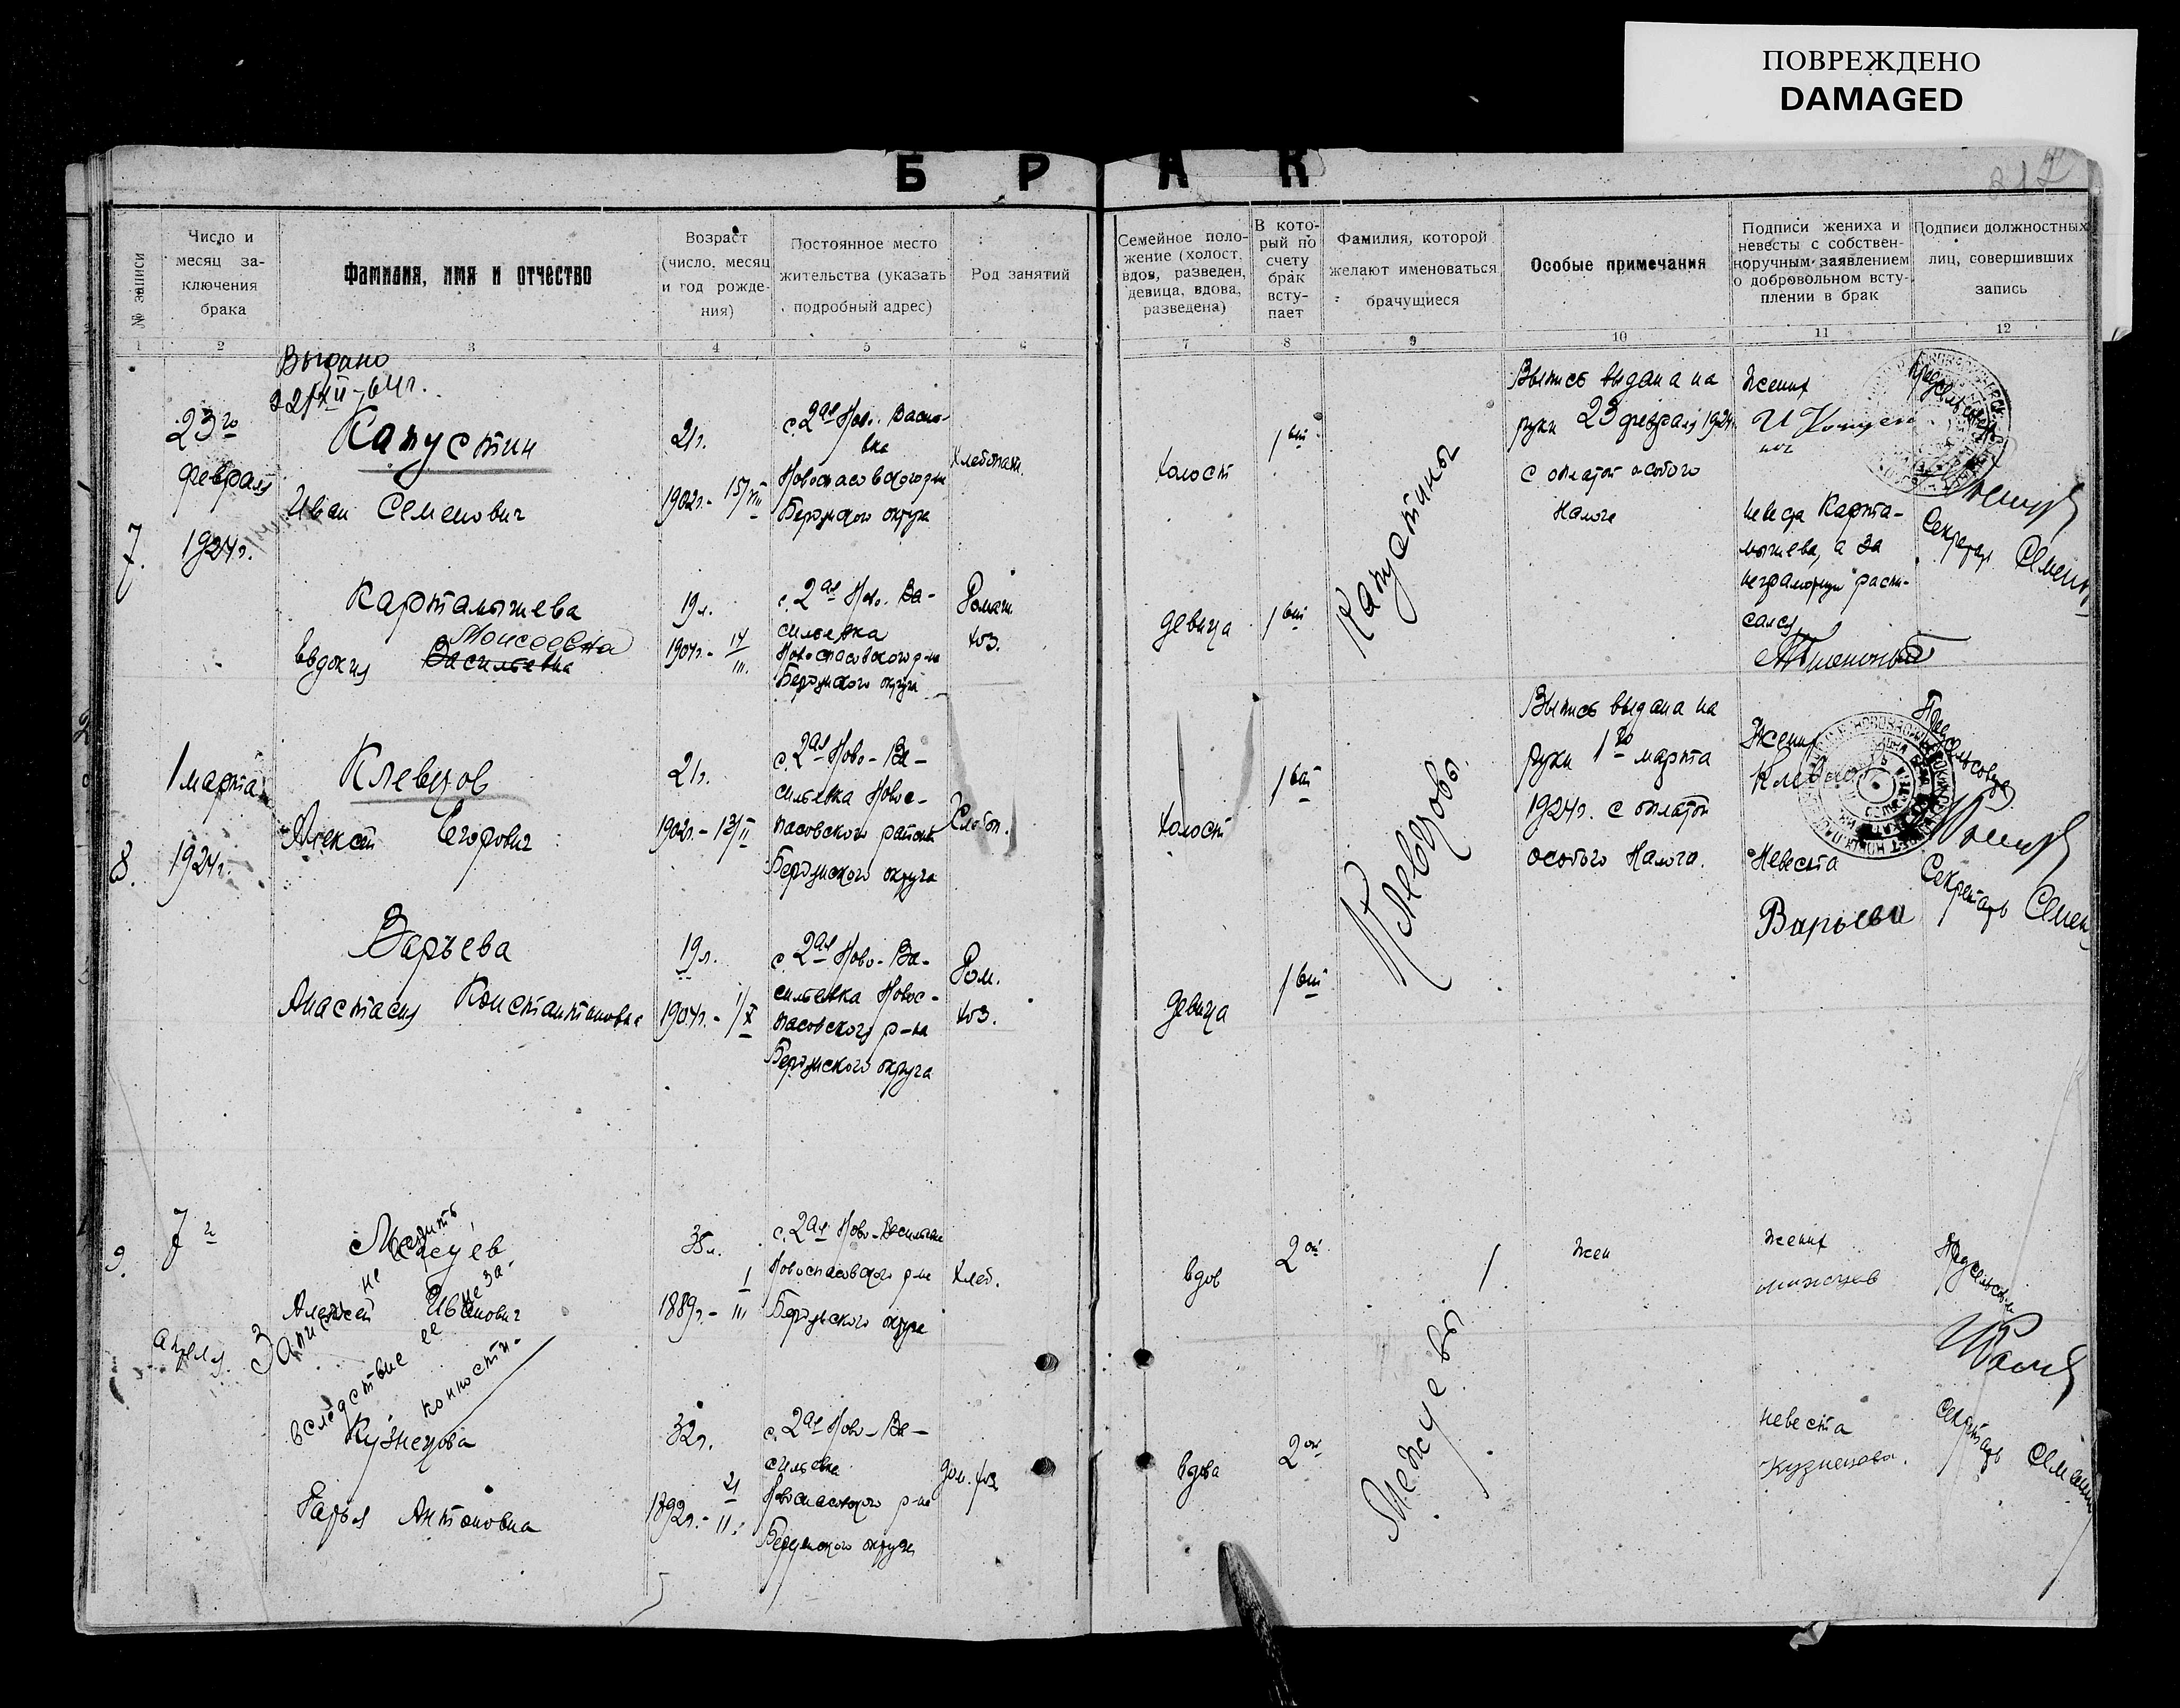 ПОВРЕЖДЕНО
DAMAGED
БРАК
№ записи
Число и
месяц за-
ключения
брака
Фамилия, имя и отчество
Возраст
(число, месяц
и год рожде-
ния)
Постоянное место
жительства (указать
подробный адрес)
Род занятий
Семейное поло-
жение (холост,
вдов, разведен,
девица, вдова,
разведена)
В кото-
рый по
счету
брак
всту-
пает
Фамилия, которой
желают именоваться
брачущиеся
Особые примечания
Подписи жениха и
невесты с собствен-
норучным заявлением
о добровольном всту-
плении в брак
Подписи должностных
лиц, совершивших
запись
1 2 3 4 5 6 7 8 9 10 11 12
7.
23го
февраля
1924г.
Выдано
22/XII-64г.
Капустин
Иван Семенович
21г.
1902г.- 15/VIII
с. 2ая Ново-Васил-
вка
Новоспасовского р-на
Бердянского округа
Хлебопаш.
холост
1ый
Капустины
Выпись выдана на
руки 23 февраля 1924г
с оплатой особого
налога
Жених
Картамышева
Евдокия Васильевна
Моисеевна
19л.
1904г.- III
с. 2ая Ново-Ва-
сильевка
Новоспасовского р-на
Бердянского округа
Домаш.
хоз.
девица
1ый
невеста Карта-
мышева, а за
неграмотную распи-
сался
Секретарь
8.
1 марта
1924г.
Клевцов
Алексей Егорович
21г.
1902г.- 13/II
с. 2ая Ново-Ва-
сильевка Новос-
пасовского района
Бердянского округа
Хлебоп.
холост
1ый
Клевцовы
Выпись выдана на
руки 1го марта
1924г. с оплатой
особого налога.
Жених
Предсельсовета
Варьева
Анастасия Константиновна
19л.
1904г.- 1/X
с. 2ая Ново-Ва-
сильевка Новос-
пасовского р-на
Бердянского округа
Дом.
хоз.
девица
1ый
Невеста
Варьева
Секретарь
9.
7го
апреля
Межуев
Алексей Иванович
35л.
1889г.- 1/III
с. 2ая Ново-Васильевка
Новоспасовского р-на
Бердянского округа
Хлеб.
вдов
2ой
Межуевы
жених
межуев
Запись не
вследствие ее неза-
конности.
Кузнецова
Дарья Антоновна
32г.
1892г.- 21/II
с. 2ая Ново-Ва-
сильевка
Новоспасовского р-на
Бердянского округа
дом. хоз.
вдова
2ой
невеста
Кузнецова.
Секретарь